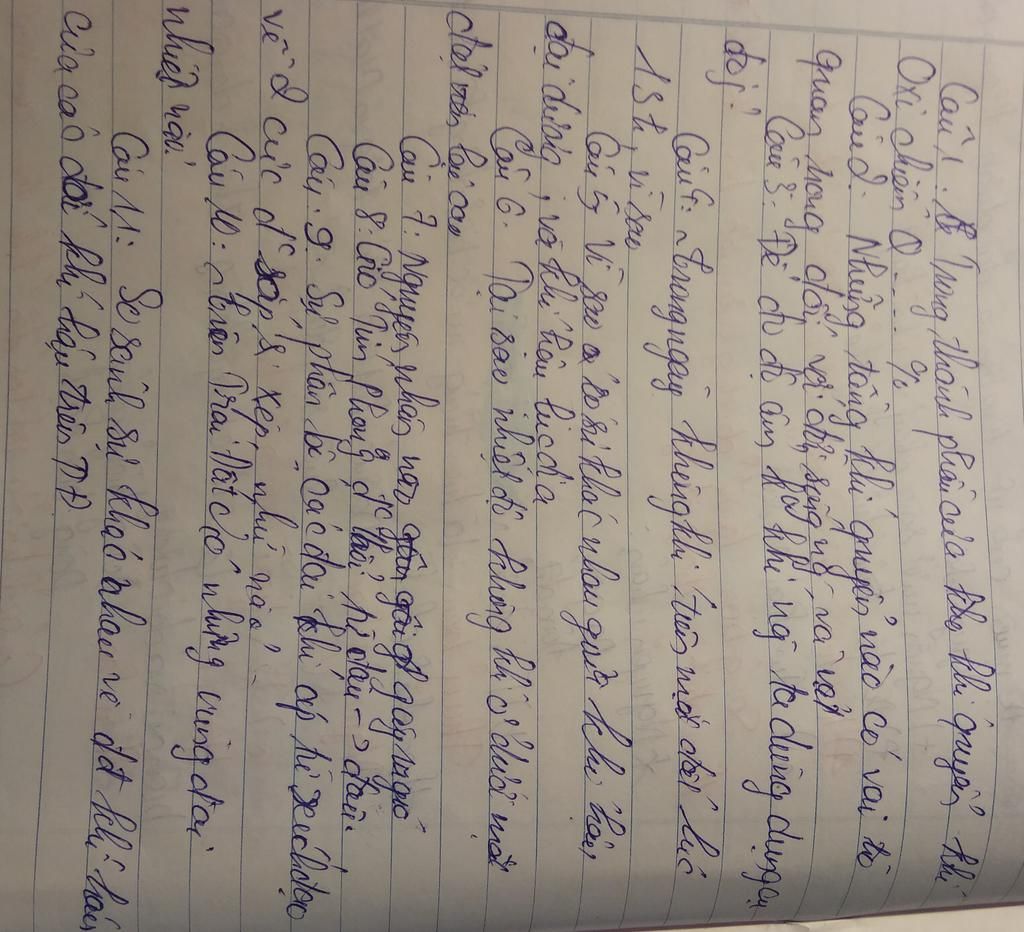 Câu 1. Trong thành phần của khí quyển khí
Oxi chiếm 0 .... %
Câu 2. Những tầng khí quyển nào có vai trò
quan trong đối với đời sống và vật
Câu 3. Để đo độ ẩm kk khí ng ta dùng dụng cụ
đo j?
Câu 4. Trong ngày không khí trên mặt đất lúc
13h, vì sao
Câu 5 Vì sao có sự khác nhau giữa khí hậu
đại dương, và khí hậu lục địa
Câu 6. Tại sao nhiệt độ không khí ở dưới mặt
đất
Câu 7. Nguyên nhân nào gây ra gió
Câu 8. Các tín phong đc thổi từ đâu -> đâu.
Câu 9. Sự phân bố các đai khí áp từ xích đạo
về 2 cực đc sắp xếp như nào.
Câu 10. Trên Trái Đất có những vùng đai
nhiệt nào.
Câu 11: So sánh sự khác nhau về đđ khí hậu
của các đới khí hậu trên TĐ